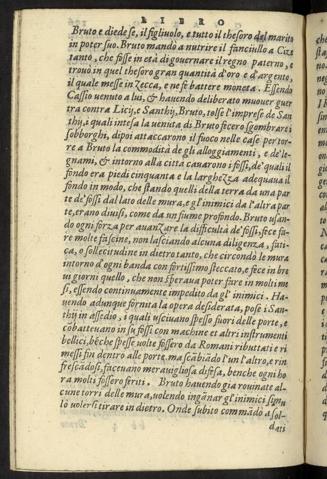 LIBRO
Bruto e diede se, il figliuolo, e tutto il thesoro del marito
in poter suo. Bruto mandò a nutrire il fanciullo a Cize
tanto, che fosse in età di governare il regno paterno, e
trovò in quel thesoro gran quantità d'oro e d'argento,
il quale messe in zecca, e ne fe battere moneta. Essendo
Cassio venuto a lui, & havendo deliberato muover guer
tra contra Licij, e Santhij, Bruto, tolse l'imprese de San
thij, i quali intesa la venuta di Bruto fecero sgombrare i
sobborghi, dipoi attaccarono il fuoco nelle case per tor‑
re a Bruto la commodità de gli alloggiamenti, e de le‑
gnami, & intorno alla città cavarono i fossi, de' quali il
fondo era piedi cinquanta e la larghezza adequava il
fondo in modo, che stando quelli della terra da una par
te de' fossi dal lato delle mura, e gl'inimici da l'altra par
te, erano divisi, come da un fiume profondo. Bruto usan‑
do ogni forza per avanzare la difficultà de' fossi, fece fa‑
re molte fascine, non lasciando alcuna diligenza, fati‑
ca, o sollecitudine in dietro tanto, che circondò le mura
intorno d'ogni banda con fortissimo steccato, e fece in bre
vi giorni quello, che non sperava poter fare in molti me
si, essendo continuamente impedito da gl'inimici. Ha‑
vendo adunque fornita la opera desiderata, pose i San‑
thij in assedio, i quali uscivano spesso fuori delle porte, e
cobatteuano in su fossi con machine et altri instrumenti
bellici, bēche spesse volte fossero da Romani ributtati e ri
messi fin dentro alle porte. ma scābiādo l'un l'altro, e rin
frescadosi, facevano meravigliosa difesa, benche ogni ho
ra molti fossero feriti. Bruto havendo gia rovinate al‑
cune torri delle mura, volendo ingānar gl'inimici simu
lò volersi tirare in dietro. Onde subito commādò a sol‑
dati